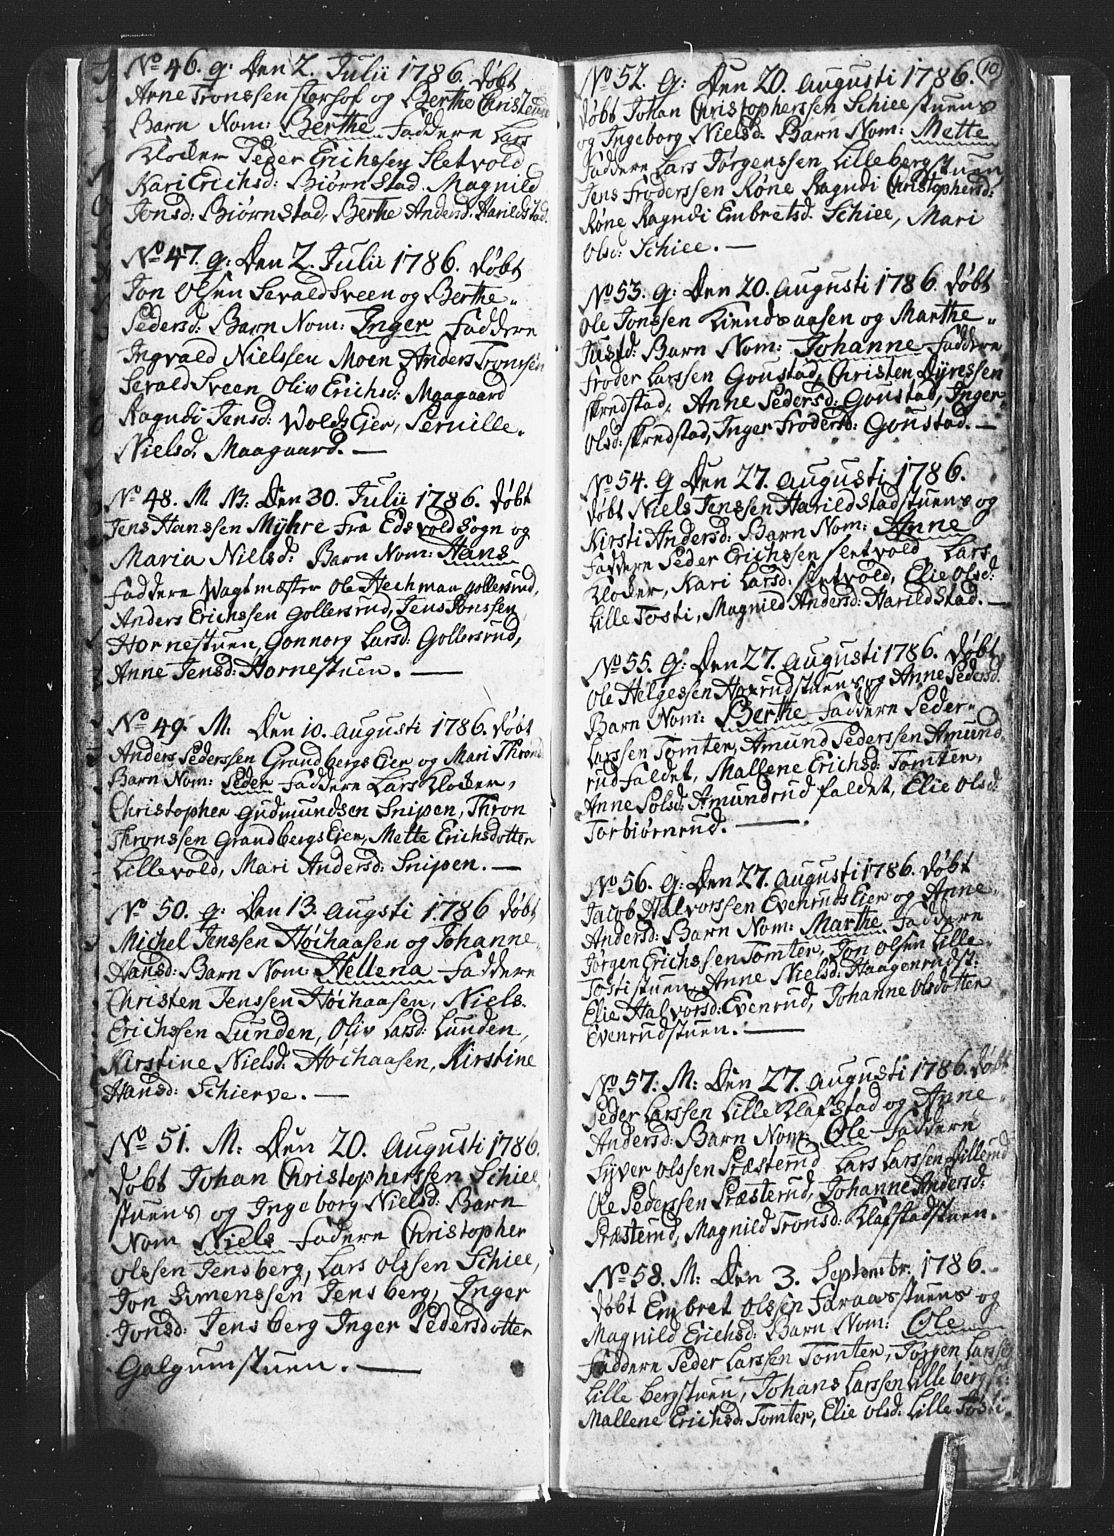 No 46. g: Den 2. Julii 1786. døbt
Arne Tronssen storhof og Berthe Christensd
Barn Nom: Berthe Faddere Lars
Klocker Peder Erichssen Sletvold
Kari Erichsd: Biørnstad. Magnild
Jonsd: Biørnstad, Berthe Andersd: Harildstad
No 47. g: Den 2. Julii 1786. døbt
Jon Olsen Sevald Sveen og Berthe
Pedersd: Barn Nom: Inger Faddere
Ingvald Nielssen Moen Anders Tronssen
Sevald Sveen Oliv Erichsd: Maagaard
Ragndi Jensd: Wolds Eier, Pernille
Nielsd. Maagaard. —
No 48. M. B: Den 30. Julii 1786. døbt
Jens Hanssen Myhre fra Edsvold Sogn og
Maria Nielsd: Barn Nom: Hans
Faddere Wagtmæster Ole Heckman gollersrud,
Anders Erichssen Gollersrud, Jens Jonssen
Hornestuen, Gonnorg Larsd: Gollersrud,
Anne Jensd: Hornestuen. —
No 49. M. Den 10. Augusti 1786. døbt
Anders Pederssen Grandbergs Eier og Mari Thronsd
Barn Nom: Peder Faddere Lars Klocker,
Christopher Gudmundsen Snipen, Thron
Thronssen Grandbergs Eier, Mette Erichsdotter
Lillevold, Mari Andersd: Snipen. —
No 50. g: Den 13. Augsti 1786 døbt
Michel Jenssen Høihaasen og Johanne
Hansd: Barn Nom: Hellena Faddere
Christen Jenssen Høihaasen, Niels
Erichssen Lunden, Oliv Larsd: Lunden,
Kirstine Nielsd: Høihaasen, Kirstine
Hansd: Schierve. —
No 51. M: Den 20. Augusti 1786.
døbt Johan Christopherssen Schiee
stuens og Ingeborg Nielsd: Barn
Nom Niels Fadere Christopher
Olssen Jensberg, Lars Olssen Schiee,
Jon Simenssen Jensberg, Inger
Jonsd: Jensberg Inger Pedersdotter
Galgumstuen. —
10
No 52. g: Den 20. Augusti 1786.
døbt Johan Christopherssen Schiee stuens
og Ingeborg Nielsd: Barn Nom: Mette
Faddere Lars Jørgenssen Lillebergstuen
Jens Froderssen Røne Ragndi Christophersd:
Røne Ragndi Embretsd: Schiee, Mari
Olsd: Schiee. —
No 53. g: Den 20. Augusti 1786. døbt
Ole Jonssen Kiendsaasen og Marthe
Justd: Barn Nom: Johanne Faddere
Froder Larssen Gonstad, Christen Dyressen
skredstad, Anne Pedersd: Gonstad, Inger
Olsd: skredstad, Inger Frodersd: Gonstad. —
No 54. g Den 27. Augusti 1786.
døbt Niels Jenssen Harildstadstuens og
Kirsti Andersd: Barn Nom: Anne
Faddere Peder Erichssen sletvold, Lars
Klocker, Kari Larsd: sletvold, Elie Olsd:
Lille Tosti, Magnild Andersd: Harildstad. —
No 55. g: Den 27. Augusti 1786. døbt
Ole Helgessen Hoxrudstuens og Anne Pedersd.
Barn Nom: Berthe Faddere Peder
Larssen Tomter, Amund Pederssen Amund
rudfaldet, Mallene Erichsd: Tomter,
Anne Polsd: Amundrudfaldet, Elie Olsd:
Torbiørnrud. —
No 56. g: Den 27. Augusti 1786. døbt
Jacob Halvorssen Evenruds Eier og Anne
Andersd: Barn Nom: Marthe Faddere
Jørgen Erichssen Tomter, Jon Olsen Lille
Tostistuen, Anne Nielsd: Haagenrudst:
Elie Halvorsd: Evenrud, Johanne Olsdotter
Evenrudstuen. —
No 57. M: Den 27. Augusti 1786. døbt
Peder Larssen Lille Klafstad og Anne
Andersd: Barn Nom: Ole Faddere
Syver Olssen Præsterud, Lars Larssen Lillerud
Ole Pederssen Præsterud, Johanne Andersd:
Præsterud, Magnild Tronsd: Klafstadstuen.
No 58. M: Den 3. Septembr. 1786.
døbt Embret Olssen Faraasstuens og
Magnild Erichsd: Barn Nom: Ole
Faddere Peder Larssen Tomter, Jørgen Larssen
Lille bergstuen, Johans Larssen Lille bergst:
Mallene Erichsd: Tomter, Elie Olsd: Lille Tosti.